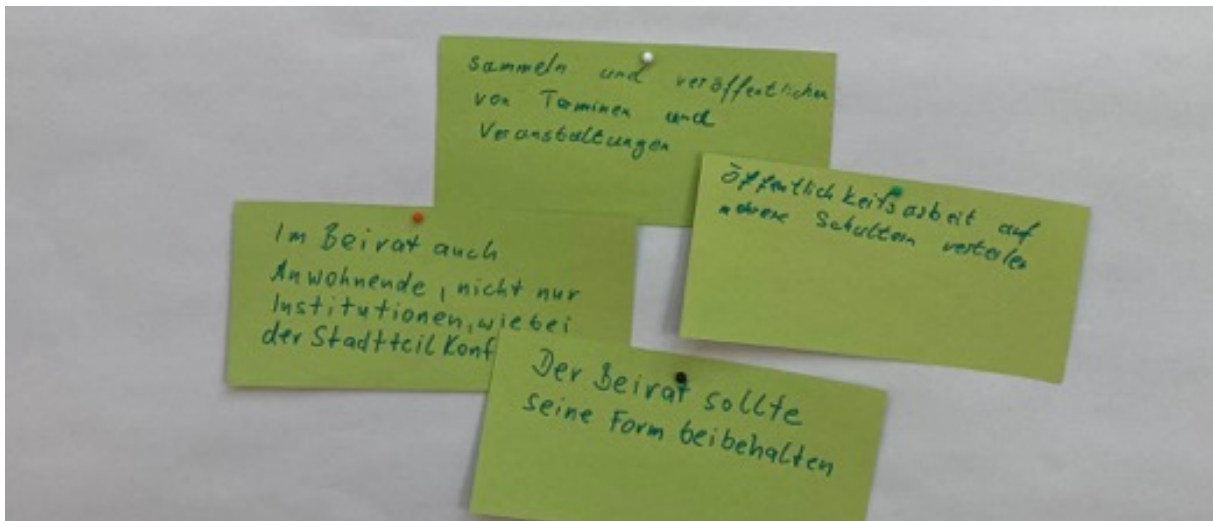 sammeln und veröffentlichen
von Terminen und
Veranstaltungen
Öffentlichkeitsarbeit auf
mehrere Schultern verteilen
Im Beirat auch
Anwohnende, nicht nur
Institutionen, wie bei
der Stadtteil Konf
Der Beirat sollte
seine Form beibehalten